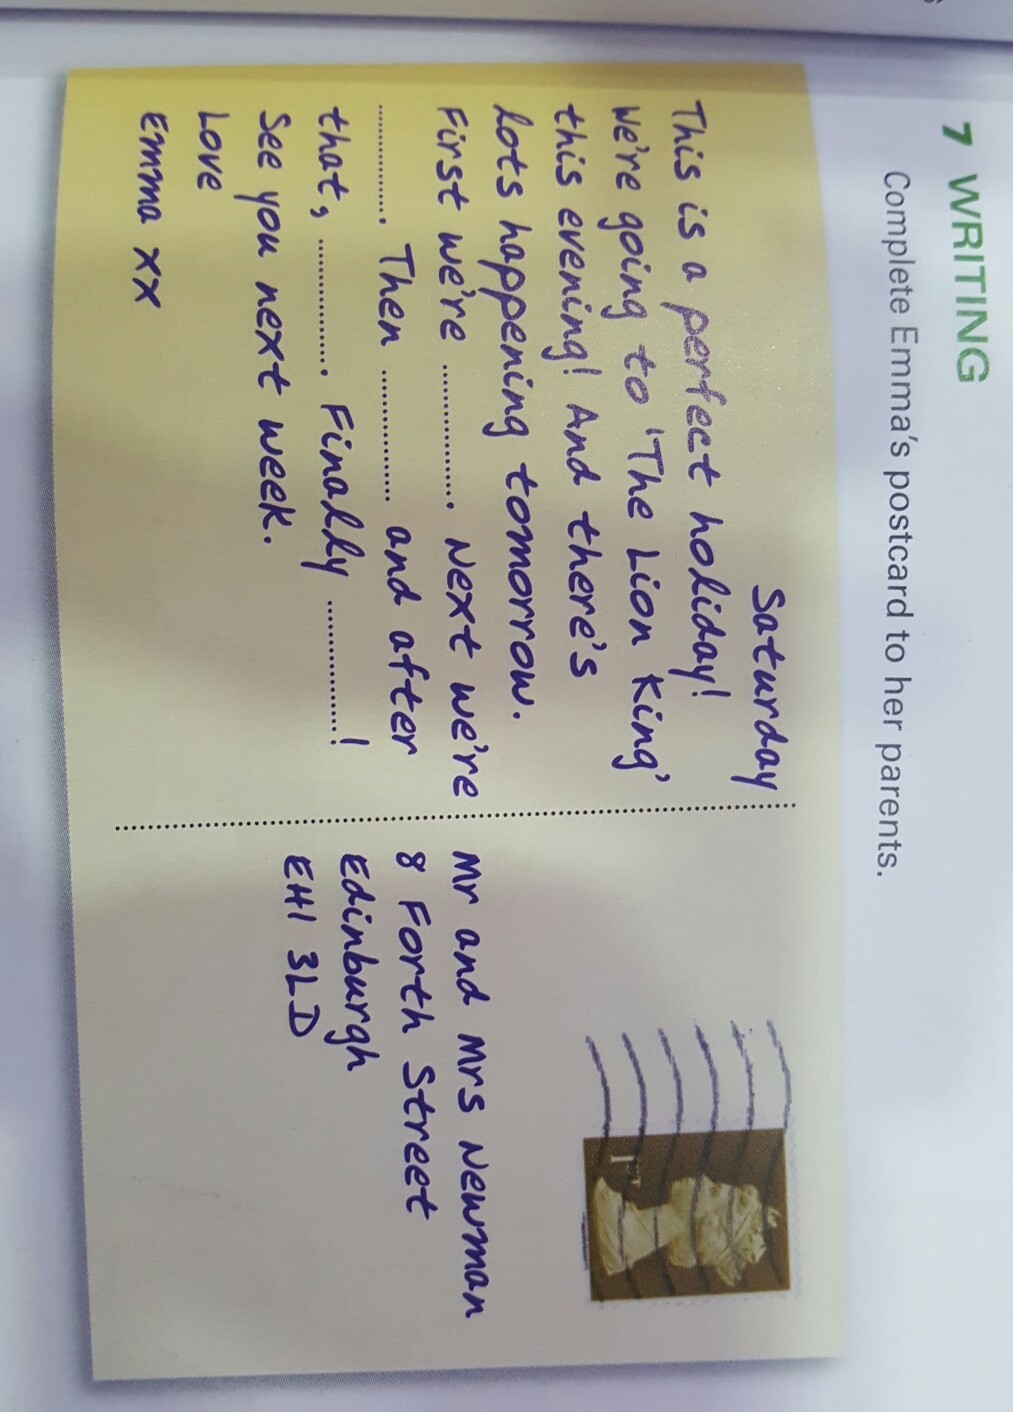 7 WRITING
Complete Emma's postcard to her parents.
Saturday
This is a perfect holiday!
We're going to 'The Lion King'
this evening! And there's
lots happening tomorrow.
First we're ............. Next we're
............. Then ............ and after
that, ............. Finally ............!
See you next week.
Love
Emma xx
Mr and Mrs Newman
8 Forth Street
Edinburgh
EH1 3LD
1ST